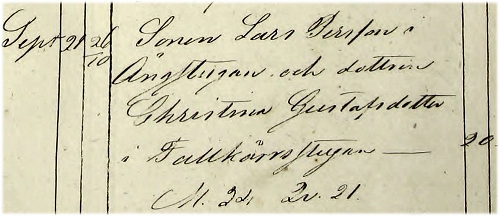 Sept 21 26/10 Sonen Lars Persson i
Ängstugan och dottren
Christina Gustafsdotter
i Tallkärrstugan — 20
M. 32, Qv. 21.